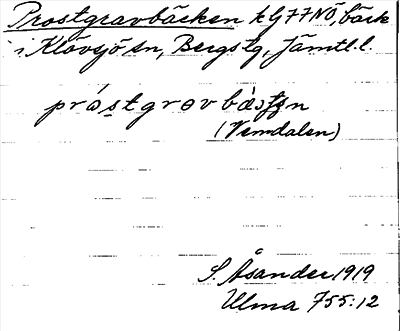 Prostgravbäcken k G 77 NÖ, bäck
i Klövsjö sn, Bergs tg, Jämtl. l.
(Vemdalen)
S. Åsander 1919
Ulma 755:12